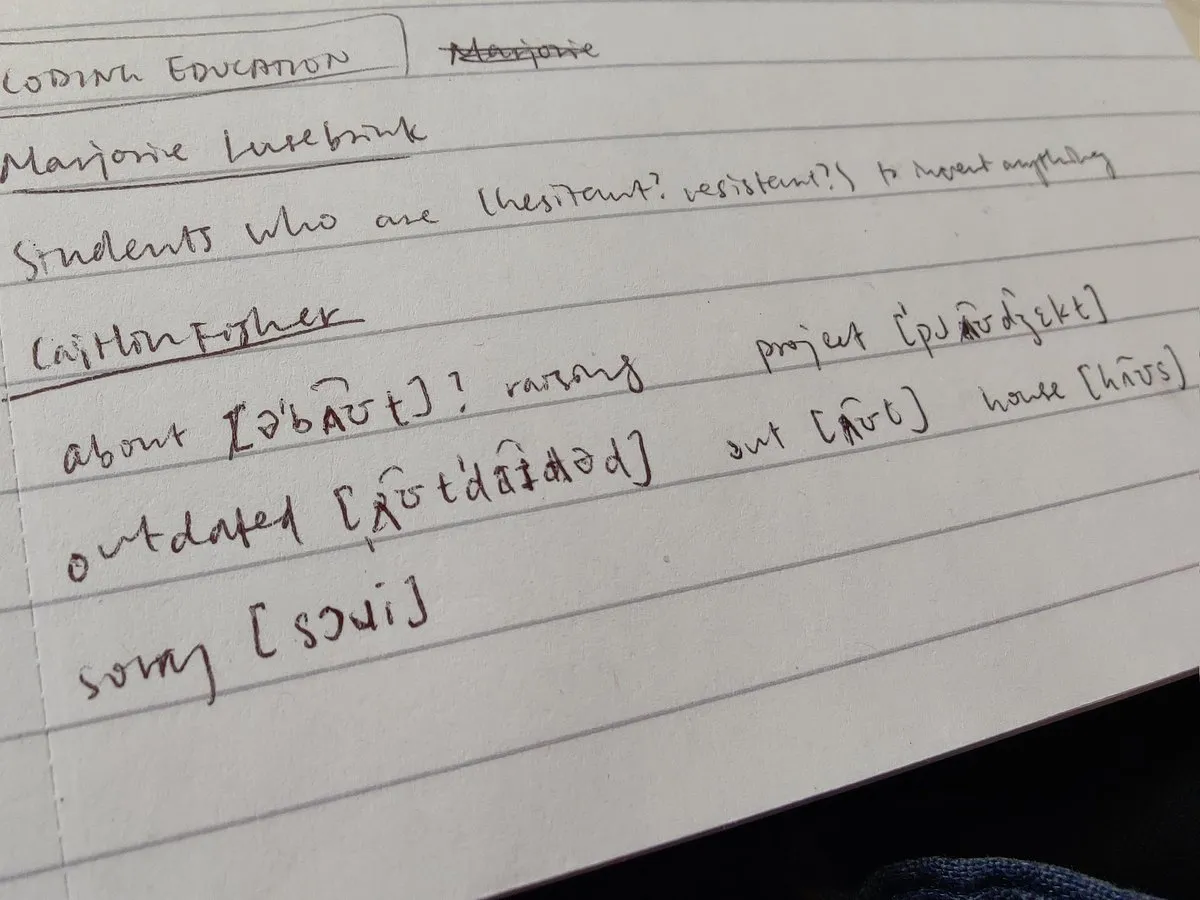 CODING EDUCATION Marjorie
Marjorie Lusebrink
Students who are (hesitant? resistant?) to invent anything
Caitlin Fisher
about [ə'bʌ͡ʊt]? raising project ['pɹʌ͡ʊd͡ʒɛkt]
outdated [ˌʌ͡ʊt'da͡ɪdəd] out [ʌ͡ʊt] house [hʌ͡ʊs]
sorry [sɔɹi]